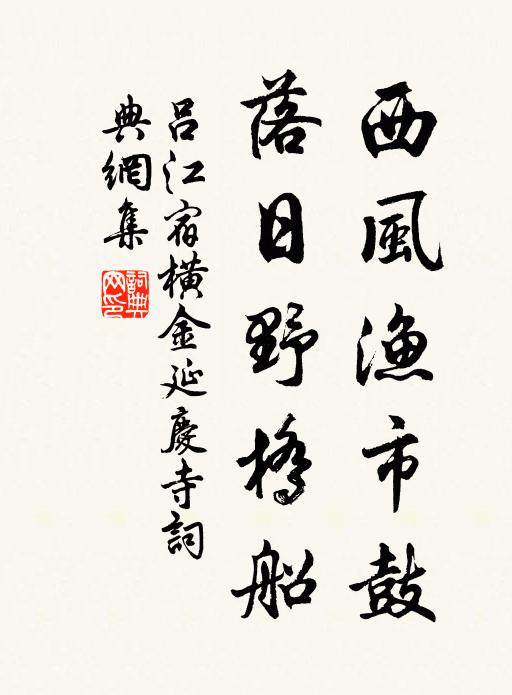 西風漁市鼓
落日野橋船
呂江宿橫金延慶寺詞
典網集
詞典網印